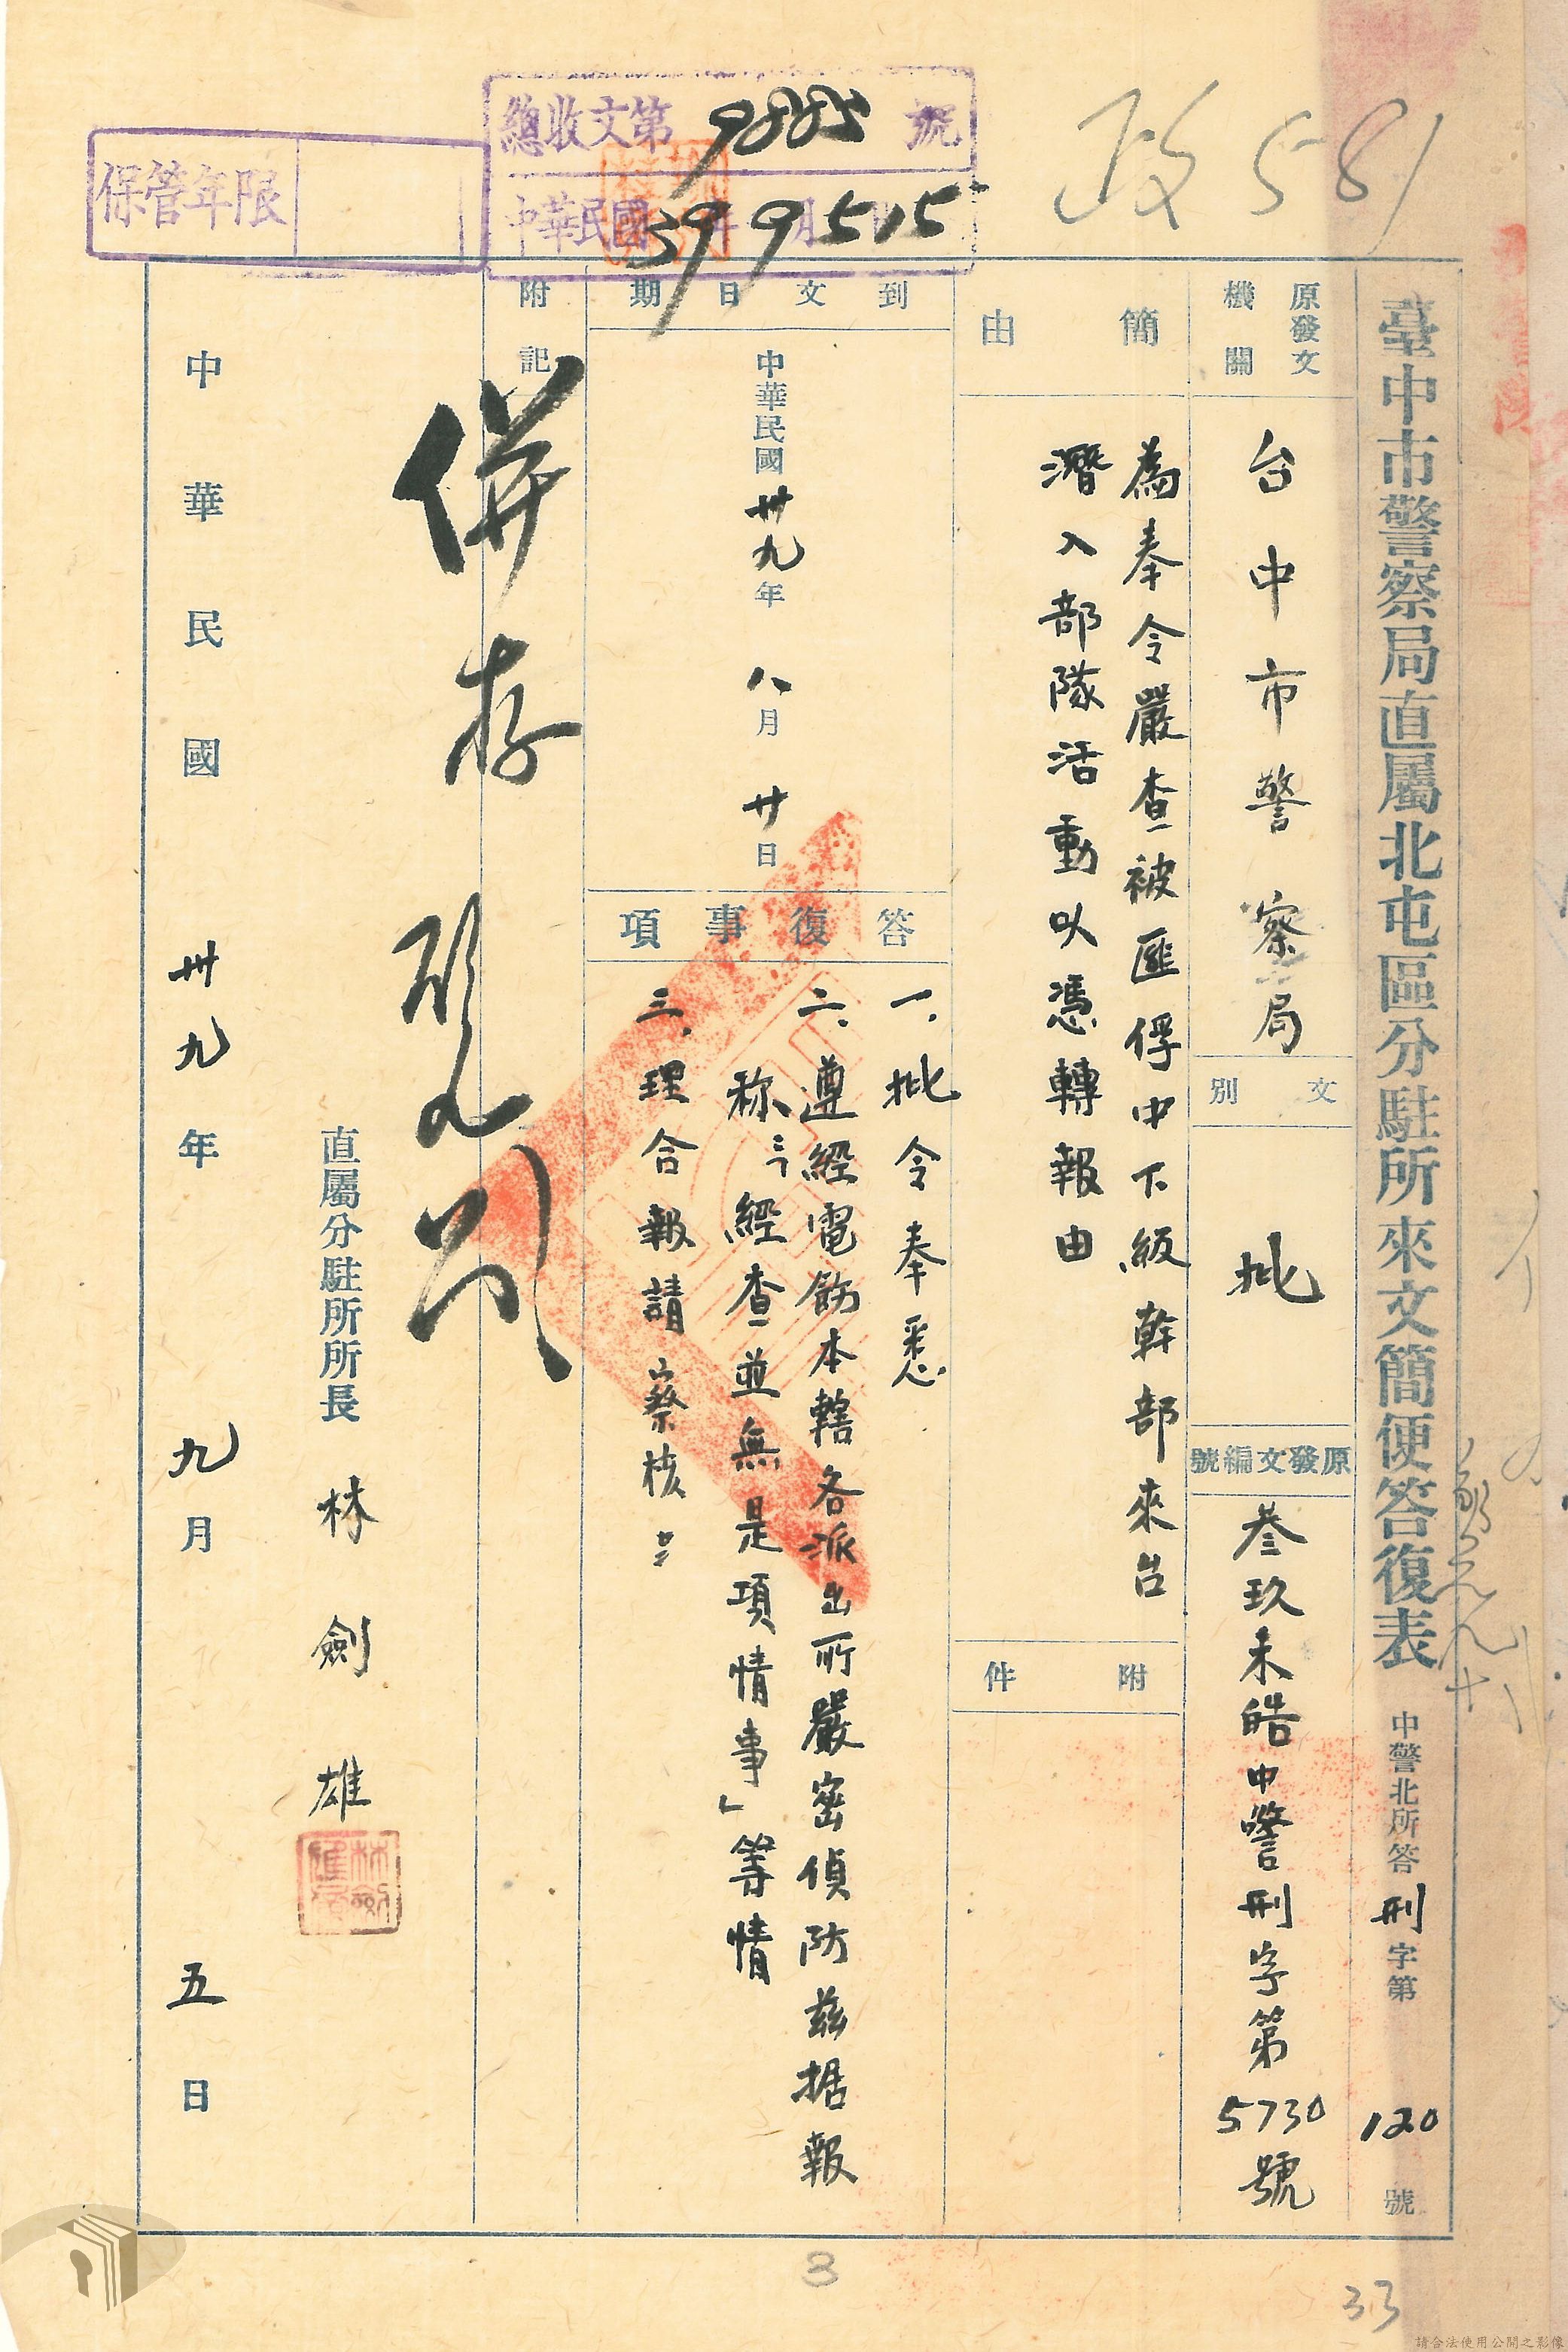 政581
總收文第9885號
中華民國39年9月5 15
保管年限
臺中市警察局直屬北屯區分駐所來文簡便答復表
中警北所答刑字第120號
原發文機關
台中市警察局
文別
批
原發文編號
叁玖未皓中警刑字第5730號
簡由
為奉令嚴查被匪俘中下級幹部來台
潛入部隊活動以憑轉報由
附件
到文日期
中華民國卅九年八月廿日
答復事項
一、批令奉悉
二、遵經電飭本轄各派出所嚴密偵防茲据報
称:「經查並無是項情事」等情
三、理合報請察核
附記
併存
直屬分駐所所長 林劍雄
中華民國卅九年九月五日
3
33
請合法使用公開之影像